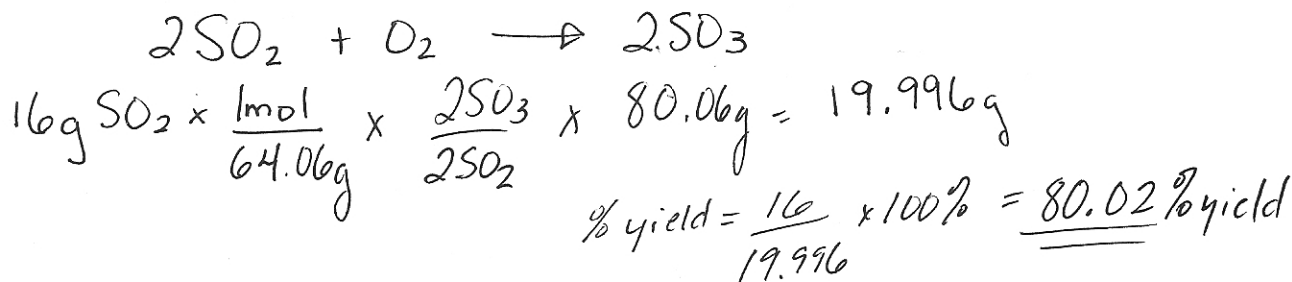 2SO₂ + O₂ → 2SO₃
16g SO₂ × 1mol/64.06g × 2SO₃/2SO₂ × 80.06g = 19.996g
% yield = 16/19.996 × 100% = 80.02% yield